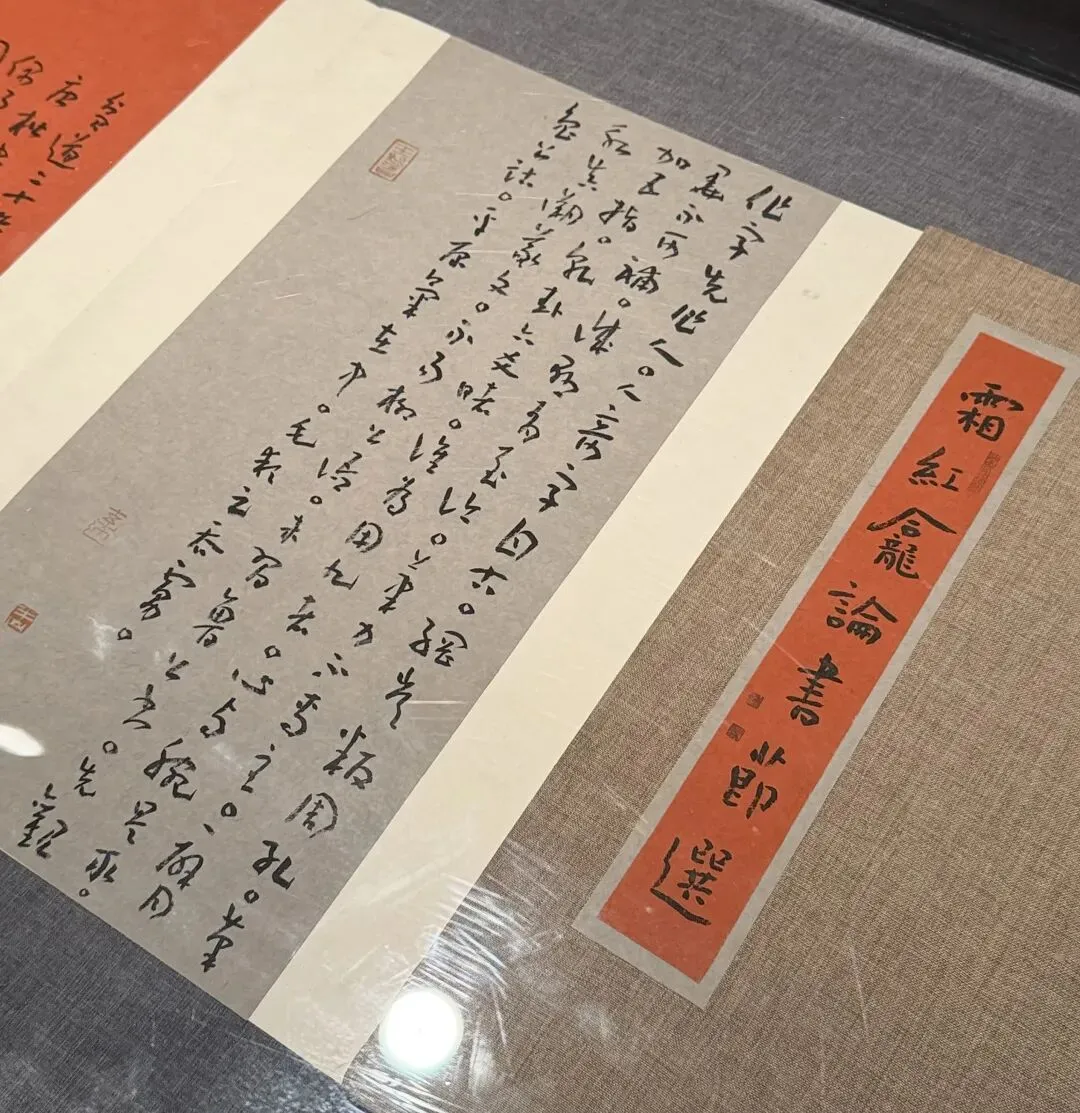 霜紅龕論書節選
作字先作人。人奇字自古。綱常叛周孔。筆
墨不可補。誠懸有至論。筆力不專主。一臂
加五指。乾卦六爻睹。誰為用九者。心與腕是取。
永興溯羲文。不易柳公語。未習魯公書。先觀
魯公詁。平原氣在中。毛穎足吞虜。
貧道二十
唐楷書
偶得